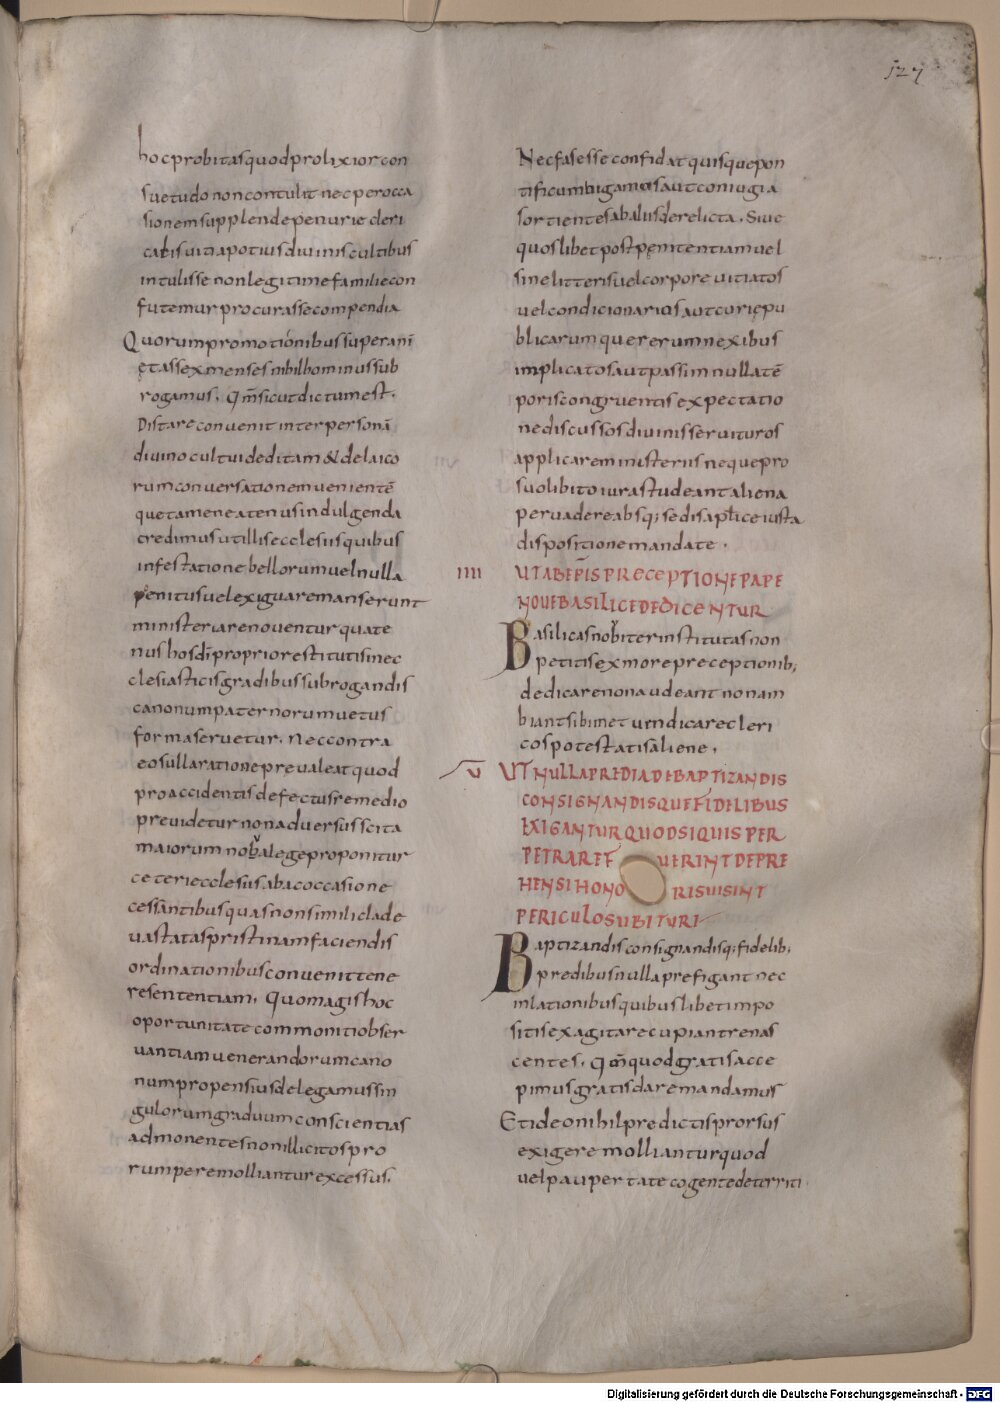 127
hoc probitas quod prolixior con
suetudo non contulit nec per occa
sionem supplende penurie cleri
catis uitia potius diuinis cultibus
intulisse non legitime familie con
futemur procurasse compendia
Quorum promotionibus super anni
ętas sex menses nihilhominus sub
rogamus. Qm̄ sicut dictum est.
Distare conuenit inter personā
diuino cultui deditam & de laico
rum conuersatione uenientē
que tamen eatenus indulgenda
credimus ut illis ecclesiis quibus
infestatione bellorum uel nulla
penitus uel exigua remanserunt
ministeria renouentur quate
nus hos dī proprio restitutis in ec
clesiasticis gradibus subrogandis
canonum paternorum uetus
forma seruetur. Nec contra
eos ulla ratione preualeat quod
pro accidentis defectus remedio
preuidetur non aduersus scita
maiorum noba lege proponitur
ceteri ecclesiis ab ac occasione
cessantibus quas non simili clade
uastatas pristinam faciendis
ordinationibus conuenit tene
re sententiam. Quo magis hoc
oportunitate commoniti obser
uantiam uenerandorum cano
num propensius delegamus sin
gulorum graduum conscientias
admonentes non illicitos pro
rumpere molliantur excessus.
Nec fas esse confidat quisque pon
tificum bigamos aut coniugia
sortientes ab aliis derelicta. Siue
quoslibet post pęnitentiam uel
sine litteris uel corpore uitiatos
uel condicionarios aut curię pu
blicarumque rerum nexibus
implicatos aut passim nulla tē
poris congruentis expectatio
ne discussos diuinis seruituros
applicare ministeriis neque pro
suo libito iura studeant aliena
peruadere absq; sedis aplice iusta
dispositione mandate.
IIII UT ABEPIS PRECEPTIONE PAPE
NOUE BASILICE DEDICENTUR
Basilicas nobiter institutas non
petitis ex more preceptionib;
dedicare non audeant non am
biant sibimet uendicare cleri
cos potestatis aliene.
V UT NULLA PREDIA DE BAPTIZANDIS
CONSIGNANDISQUE FIDELIBUS
EXIGANTUR QUOD SI QUIS PER
PETRARE F UERINT DEPRE
HENSI HONO RIS UI SINT
PERICULO SUBITURI
Baptizandis consignandisq; fidelib;
predibus nulla prefigant nec
inlationibus quibuslibet impo
sitis exagitare cupiant renas
centes. Qm̄ quod gratis acce
pimus gratis dare mandamus
Et ideo nihil predictis prorsus
exigere molliantur quod
uel paupertate cogente deterriti
Digitalisierung gefördert durch die Deutsche Forschungsgemeinschaft - DFG